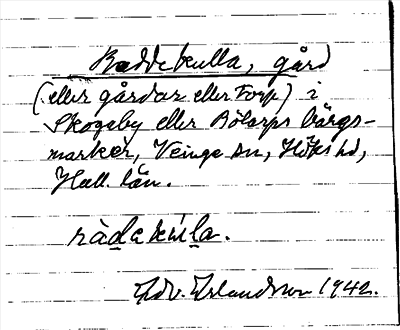 Reddekulla, gård
(eller gårdar eller torp) i
Skogaby eller Bölarps bärgs-
marker, Veinge sn, Höks hd,
Hall. län.
ràdekúla.
Adv. Erlandsson 1942.